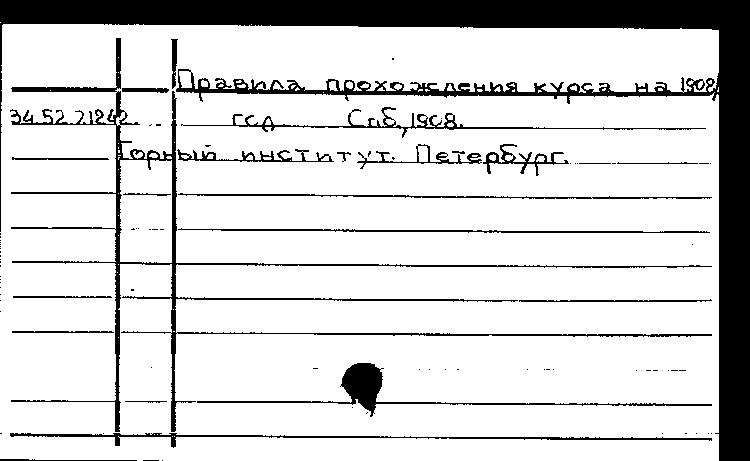 Правила прохождения курса на 1908/
34.52.7.1242. год Спб, 1908.
Горный институт. Петербург.